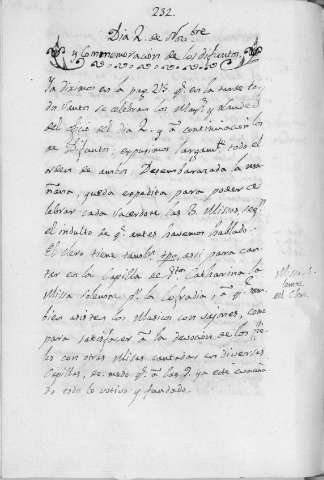 232.
Dia 2. de Nov.bre
y Commemoracion de los difuntos.
Ya diximos en la pag. q.e en la tarde de to
dos Santos se celebran los Mayt.s y Laudes
del oficio del dia 2. y a continuacion los
de Difuntos: expusimos largam.te todo el
orden de ambos. Desembarazada la ma-
ñana, queda expedita para poder ce
lebrar cada Sacerdote las 3. Missas, seg.n
el indulto de q.e antes havemos hablado.
El clero tiene tambn. tpo. assi para can-
tar en la Capilla de S.ta Catharina la
Missa solemne p.r la Cofradia, a q.e tam-
bien asisten los Musicos con sayones, como
para satisfacer a la devocion de los fie-
les con otras Missas cantadas en diversas
Capillas, de modo q.e a las 9. ya está evacua
do todo lo votivo y fundado.
Missa so-
lemne
del Clero.